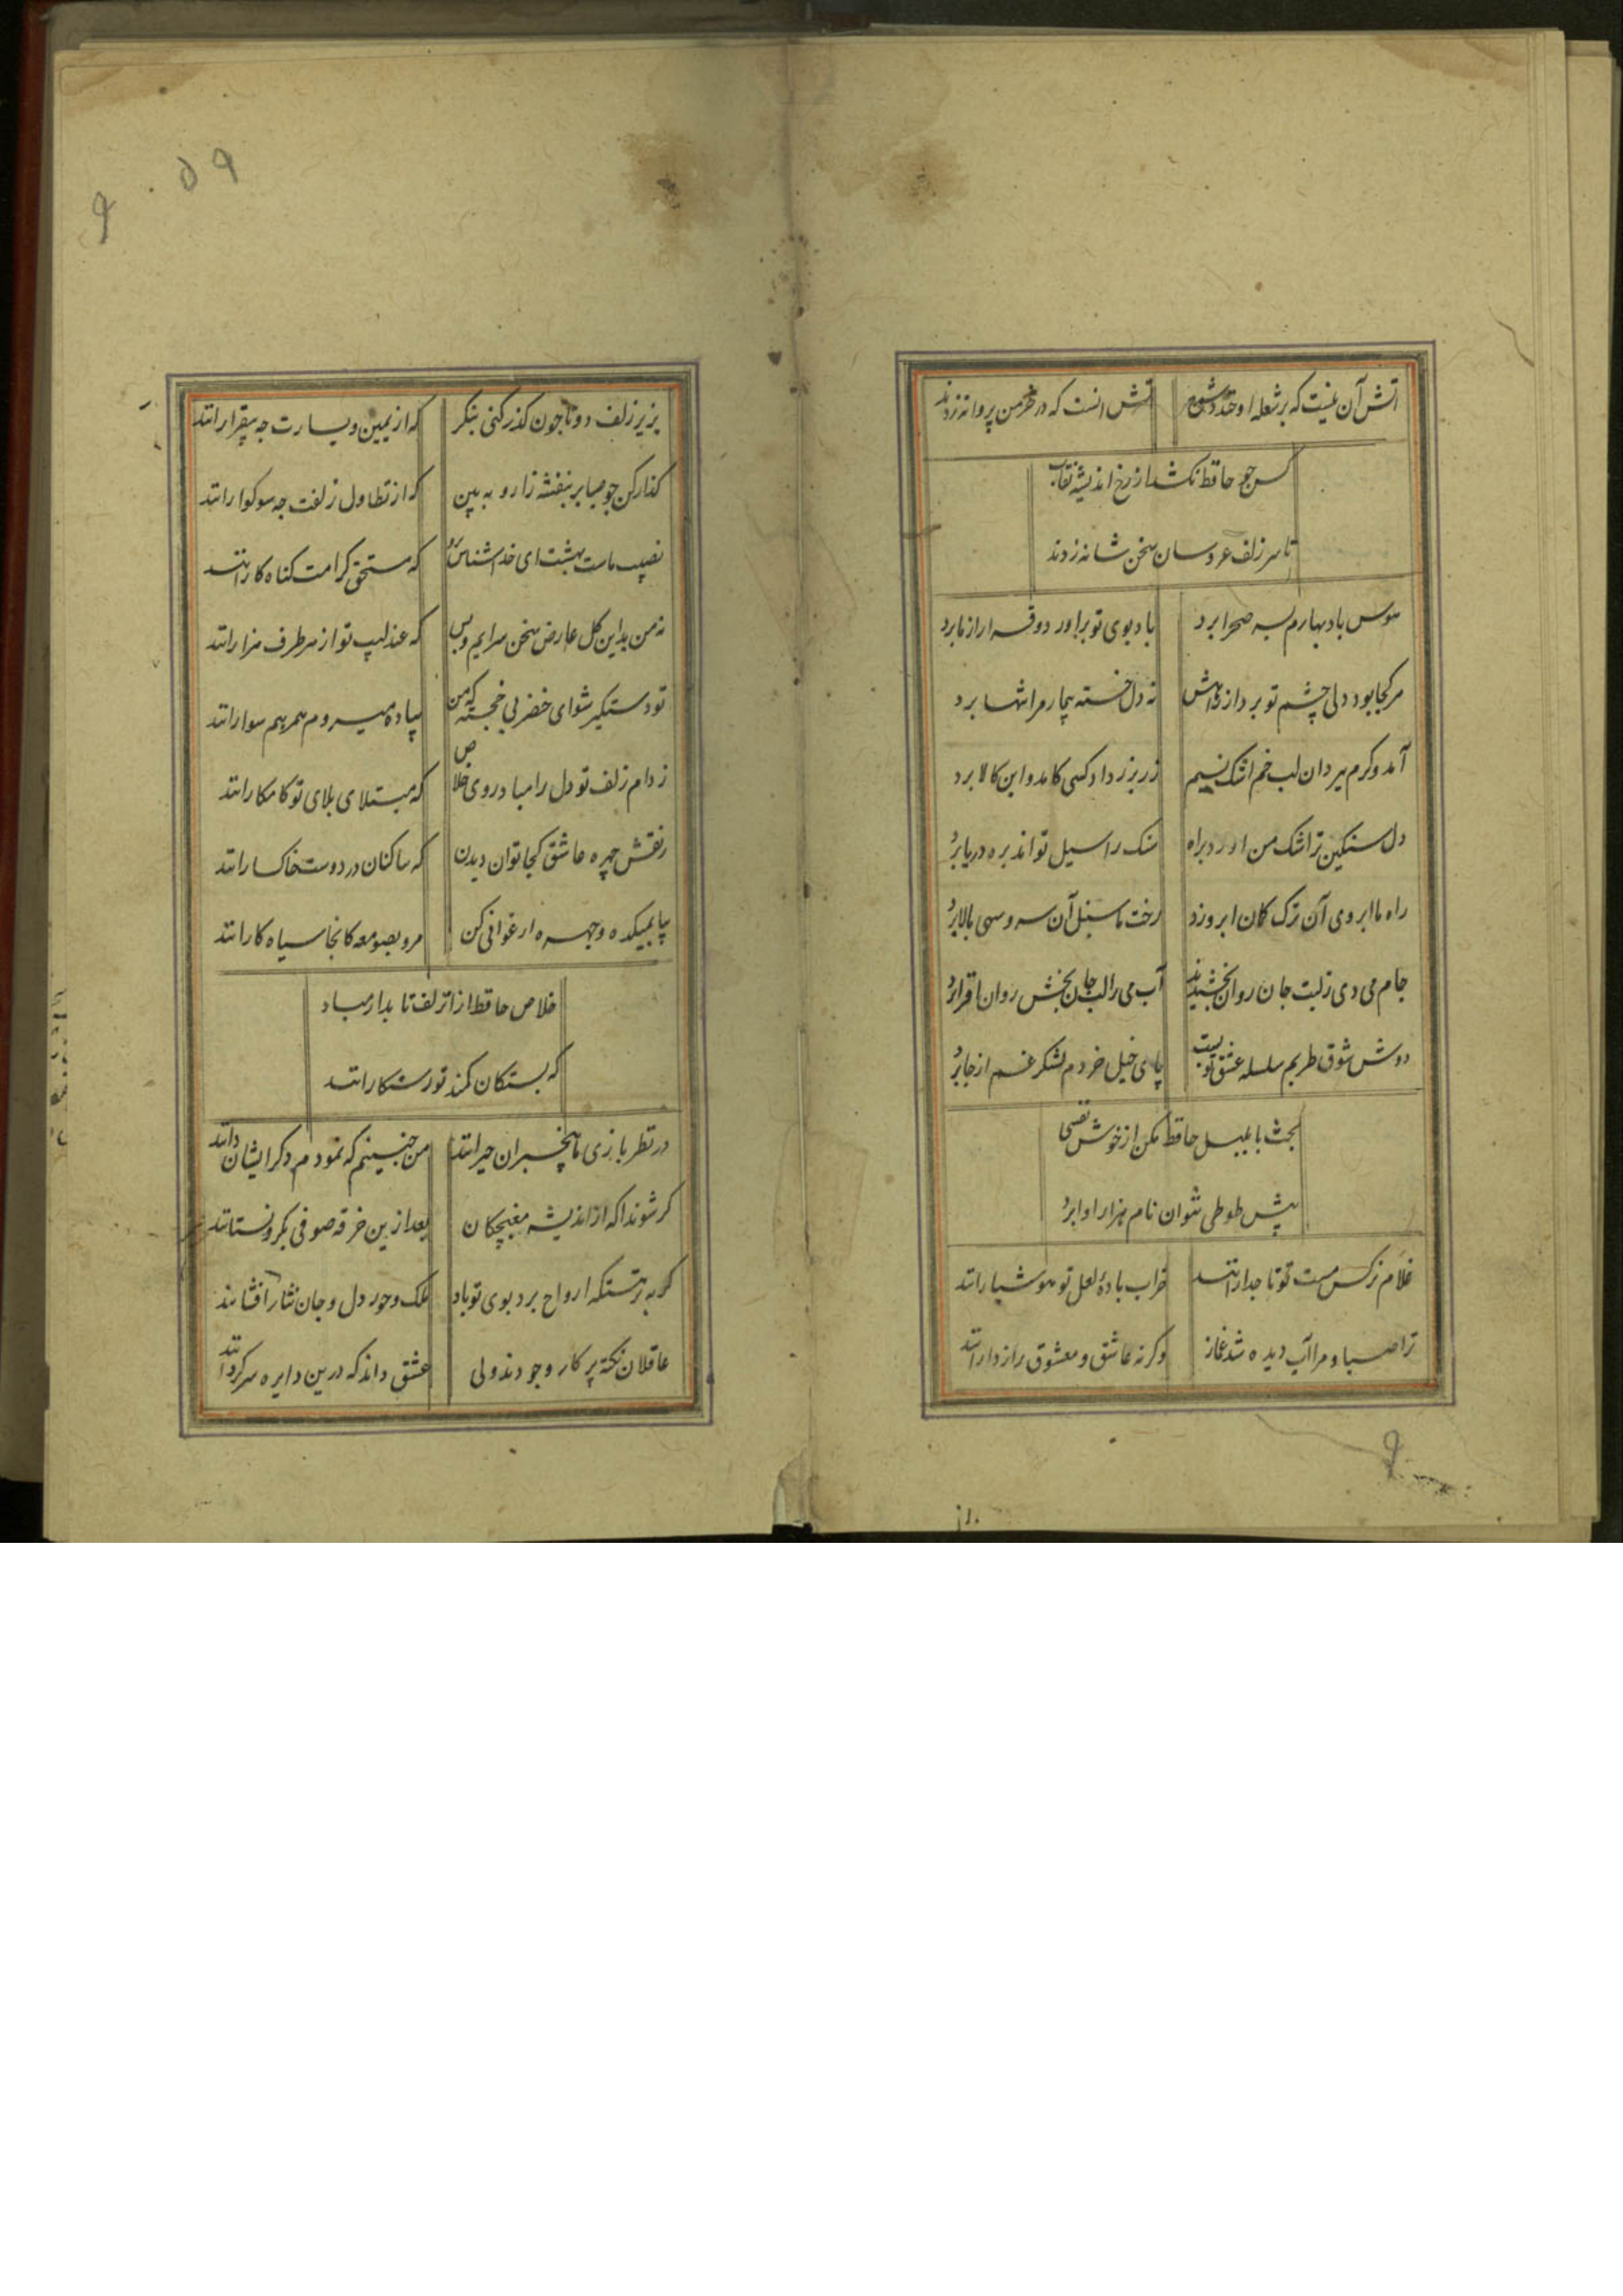 اتش آن نیست که بر شعله او خندد شمع اتش انست که در خرمن پروانه زدند
کس چو حافظ نکشد از رخ اندیشه نقاب
تا سر زلف عروسان سخن شانه زدند
هوس باد بهارم بسه صحرا برد باد بوی تو براورد و قرار از ما برد
هر کجا بود دلی چشم تو برد از راهش نه دل خسته بیمار مرا تنها برد
آمد و کرم ببرد آن لب خم اشک نسیم زر بزر داد کسی کامد و این کالا برد
دل سنکین ترا اشک من اورد براه سنک را سیل تواند بره دریا برد
راه ما ابروی آن ترک کمان ابرو زد رخت ما سنبل آن سرو سهی بالا برد
جام می دی زلبت جان روان بخشید آب می را لب جان بخش روان افزا برد
دوش شوق طربم سلسله عشق تو بست پای خیل خردم لشکر غم از جا برد
بحث با بلبل حافظ مکن از خوش نفسی
پیش طوطی نتوان نام هزار اوا برد
غلام نرکس مست تو تاجدارانند خراب بادهٔ لعل تو هوشیارانند
ترا صبا و مرا آب دیده شد غماز وکرنه عاشق و معشوق رازدارانند
بزیر زلف دوتا چون کذر کنی بنکر که از یمین و یسارت چه بیقرارانند
کذار کن چو صبا بر بنفشه زار و به بین که از تطاول زلفت چه سوکوارانند
نصیب ماست بهشت ای خداشناس برو که مستحق کرامت کناه کارانند
نه من بداین کل عارض سخن سرایم و بس که عندلیب تو از هر طرف هزارانند
تو دستکیر شو ای خضر پی خجسته که من پیاده میروم همرهم سوارانند
ز دام زلف تو دل را مبادروی خلاص که مبتلای بلای تو کامکارانند
زنقش چهره عاشق کجا توان دیدن که ساکنان در دوست خاکسارانند
بیا بمیکده و چهره ارغوانی کن مرو بصومعه کانجا سیاه کارانند
خلاص حافظ از انزلف تابدار مباد
که بستکان کمند تو رستکارانند
در نظربازی ما بیخبران حیرانند من چنینم که نمودم دکر ایشان دانند
کر شوند اکه از اندیشه مغبچکان بعد ازین خرقه صوفی بکرو نستانند
کر به نزهتکه ارواح برد بوی تو باد ملک و حور دل و جان نثار افشانند
عاقلان نکتهٔ پرکار وجودند ولی عشق داند که درین دایره سرکردانند